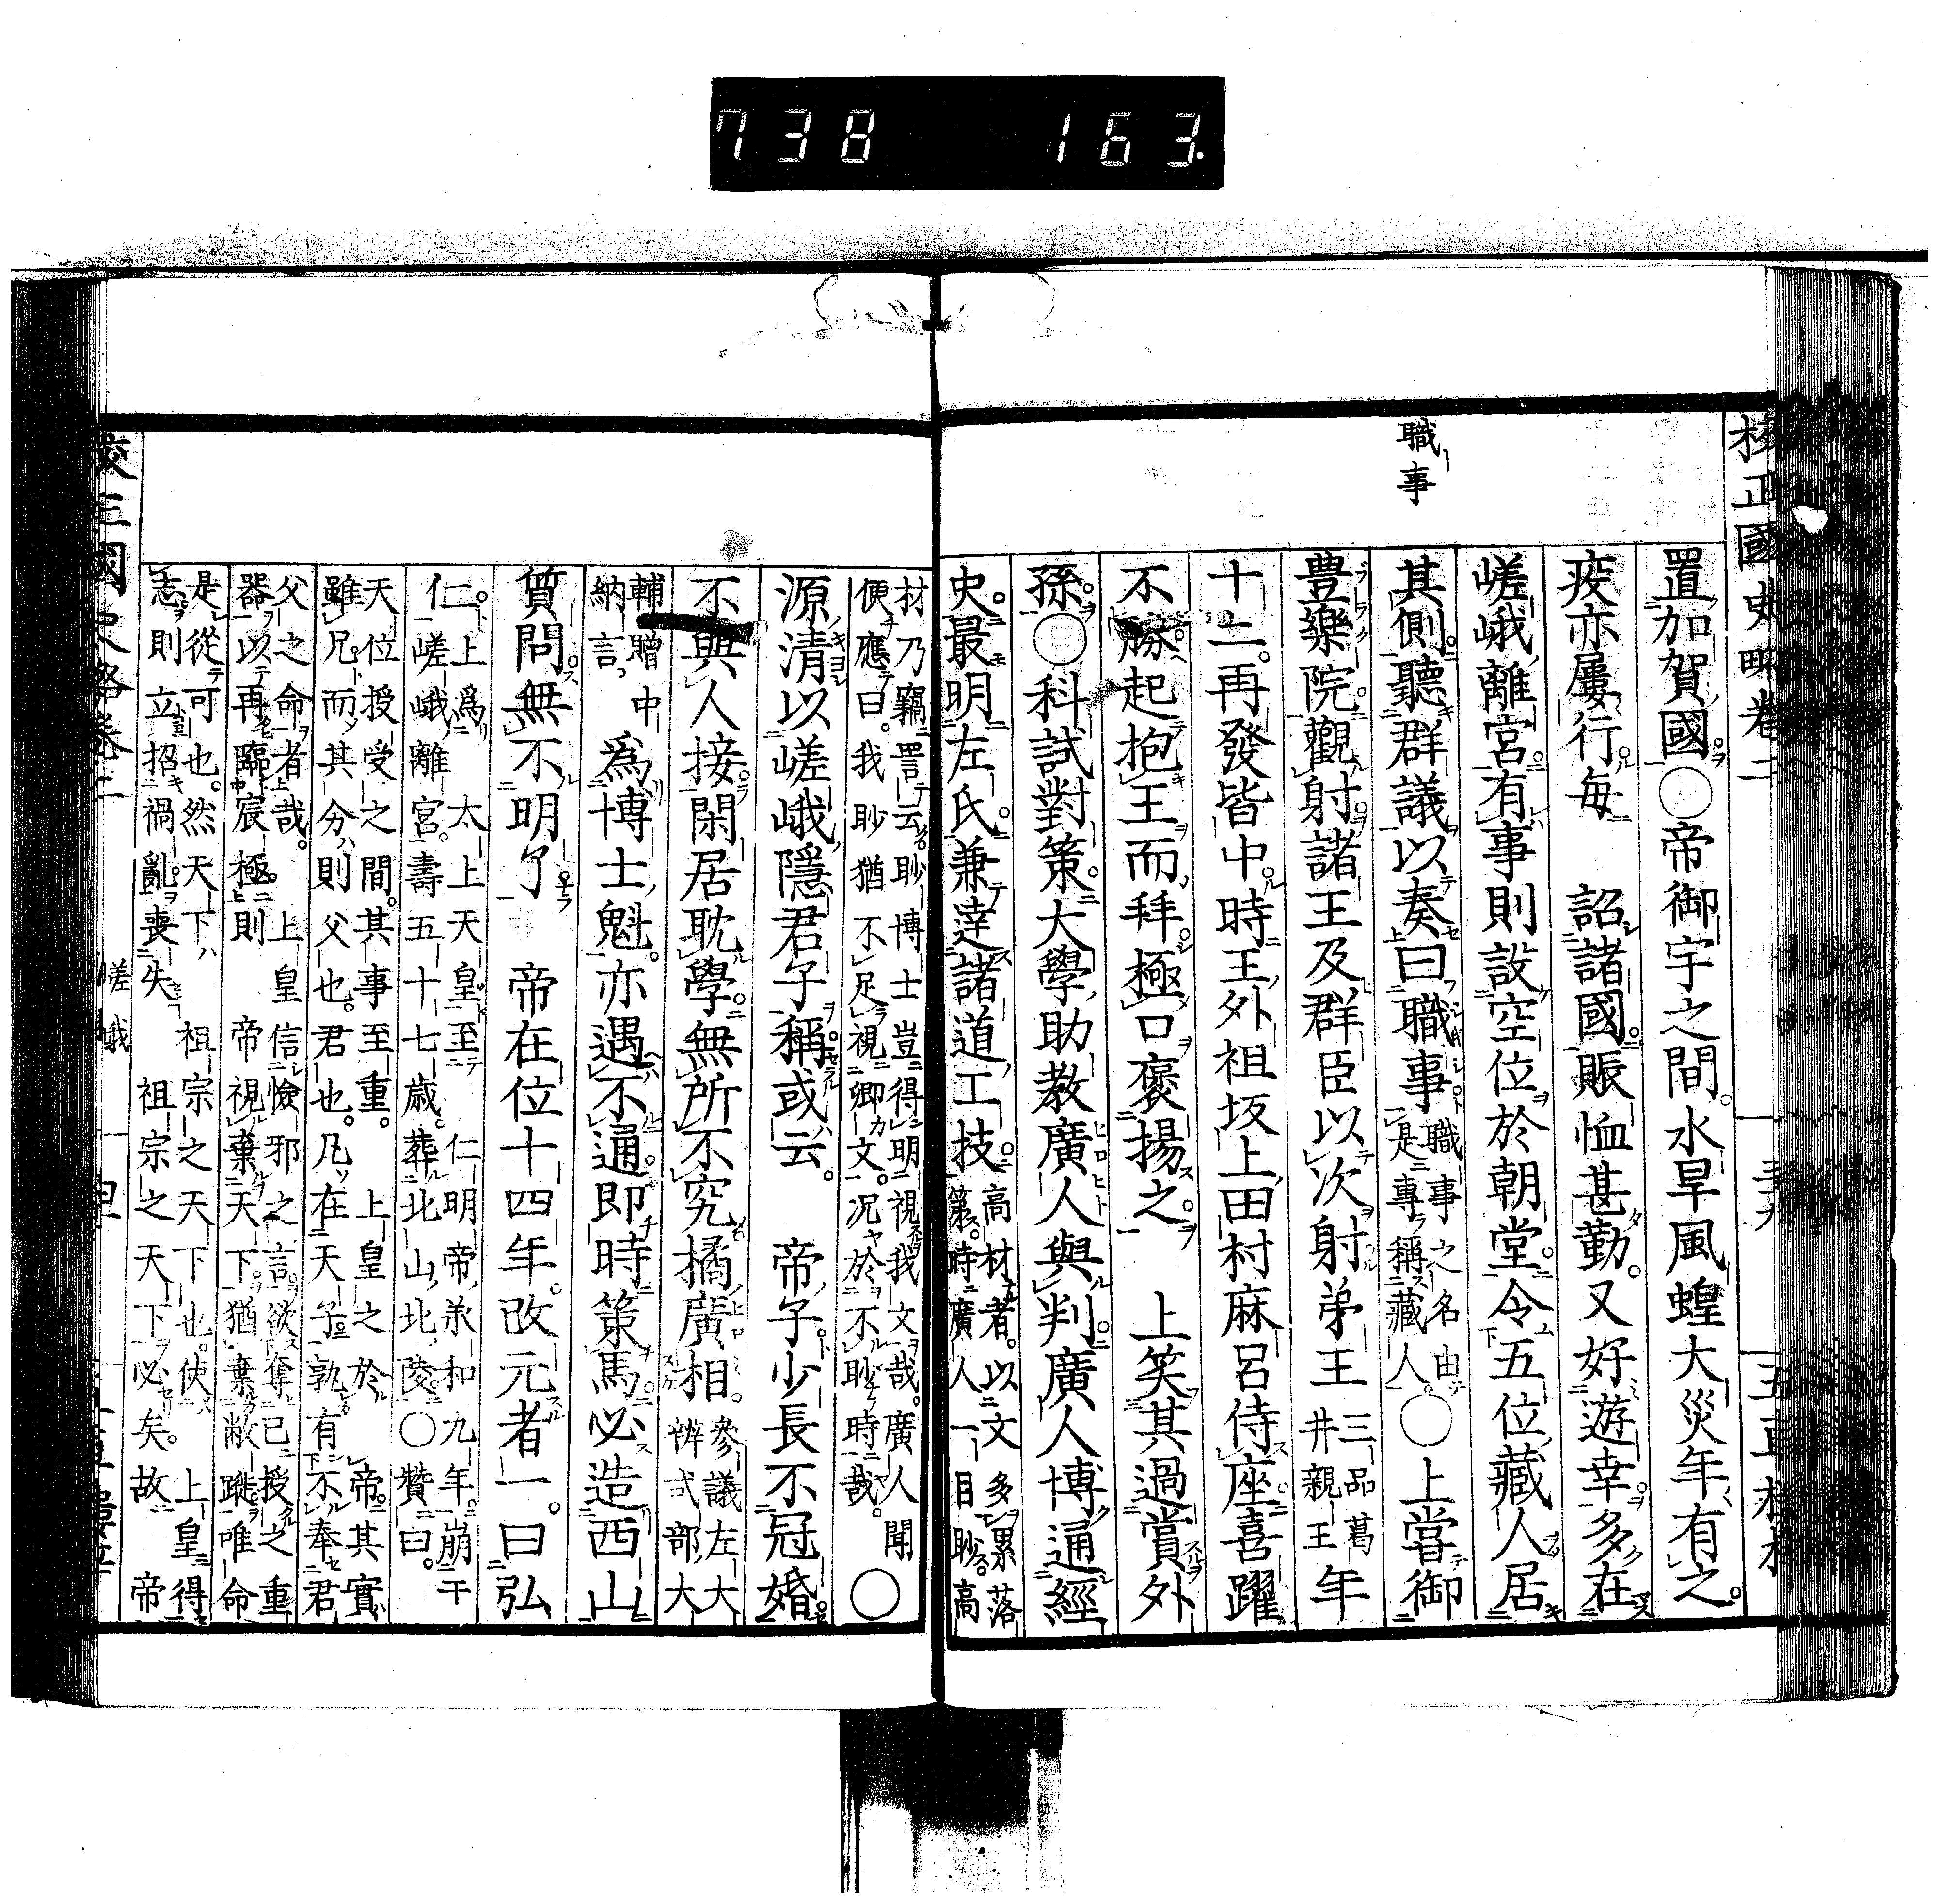 738 163.
校正國史略卷二
職事
置加賀國○帝御宇之間水旱風蝗大災年有之
疫亦屢行每 詔諸國賑恤甚勤又好遊幸多在
嵯峨離宮有事則設空位於朝堂令五位藏人居
其側聽群議以奏曰職事職事之名由是專稱藏人○上嘗御
豊樂院觀射諸王及群臣以次射弟王三品葛井親王年
十二再發皆中時王外祖坂上田村麻呂侍座喜躍
不勝起抱王而拜極口褒揚之 上笑其過賞外
孫○科試對策大學助教廣人與判廣人博通經
史最明左氏兼達諸道工技高材者以文多累落第時廣人一目眇高
材乃竊詈云眇博士豈得明視我文哉廣人聞便應曰我眇猶不足視卿文况於不眇時哉○
源清以嵯峨隱君子稱或云 帝子少長不冠婚
不與人接閑居耽學無所不究橘廣相參議左大辨式部大
輔贈中納言爲博士魁亦遇不通即時策馬必造西山
質問無不明了 帝在位十四年改元者一曰弘
仁上爲太上天皇至仁明帝承和九年崩于嵯峨離宮壽五十七歲葬北山北陵○贊曰
天位授受之間其事至重 上皇之於 帝其實雖兄而其分則父也君也凡在天子孰有不奉君
父之命者哉 上皇信憸邪之言欲奪已授之重器以再臨宸極則 帝視棄天下猶棄敝蹝唯命
是從可也然天下 祖宗之天下也使 上皇得志則立招禍亂喪失 祖宗之天下必矣故 帝
嵯峨